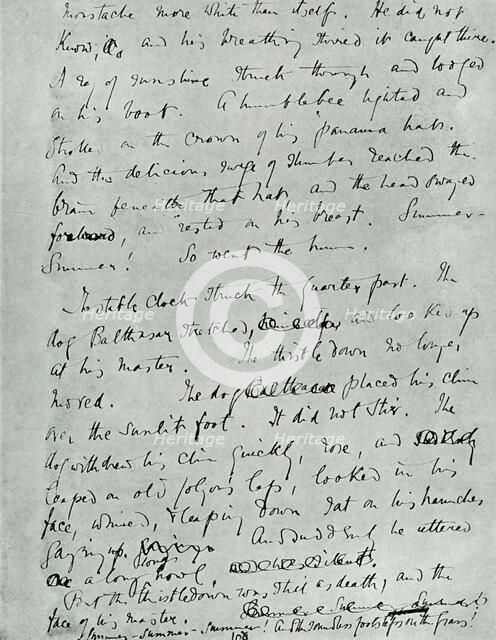 moustache more white than itself. He did not
know, and his breathing stirred it caught there.
A ray of sunshine struck through and lodged
on his boot. A humblebee lighted and
strolled on the crown of his Panama hat.
And the delicious surge of slumber reached the
brain beneath that hat, and the head swayed
forward, and rested on his breast. Summer-
Summer! So went the hum.
The stable clock struck the quarter past. The
dog Balthasar stretched, and looked up
at his master. The thistledown no longer
moved. The dog placed his chin
over the sunlit foot. It did not stir. The
dog withdrew his chin quickly, rose, and
leaped on old Jolyon's lap, looked in his
face, whined, & leaping down sat on his haunches
gazing up. And suddenly he uttered
a long long howl.
But the thistledown was still as death, and the
face of his master.
Summer-summer-summer! And the soundless footsteps on the grass!
Heritage
Heritage
Heritage
Heritage
Heritage
Heritage
©